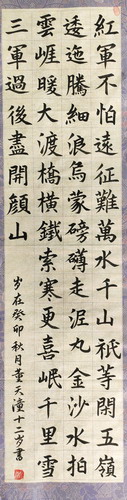 紅軍不怕遠征難萬水千山祇等閑五嶺
逶迤騰細浪烏蒙磅礴走泥丸金沙水拍
雲崕暖大渡橋橫鐵索寒更喜岷千里雪
三軍過後盡開顏山
岁在癸卯秋月董天潼十二岁書